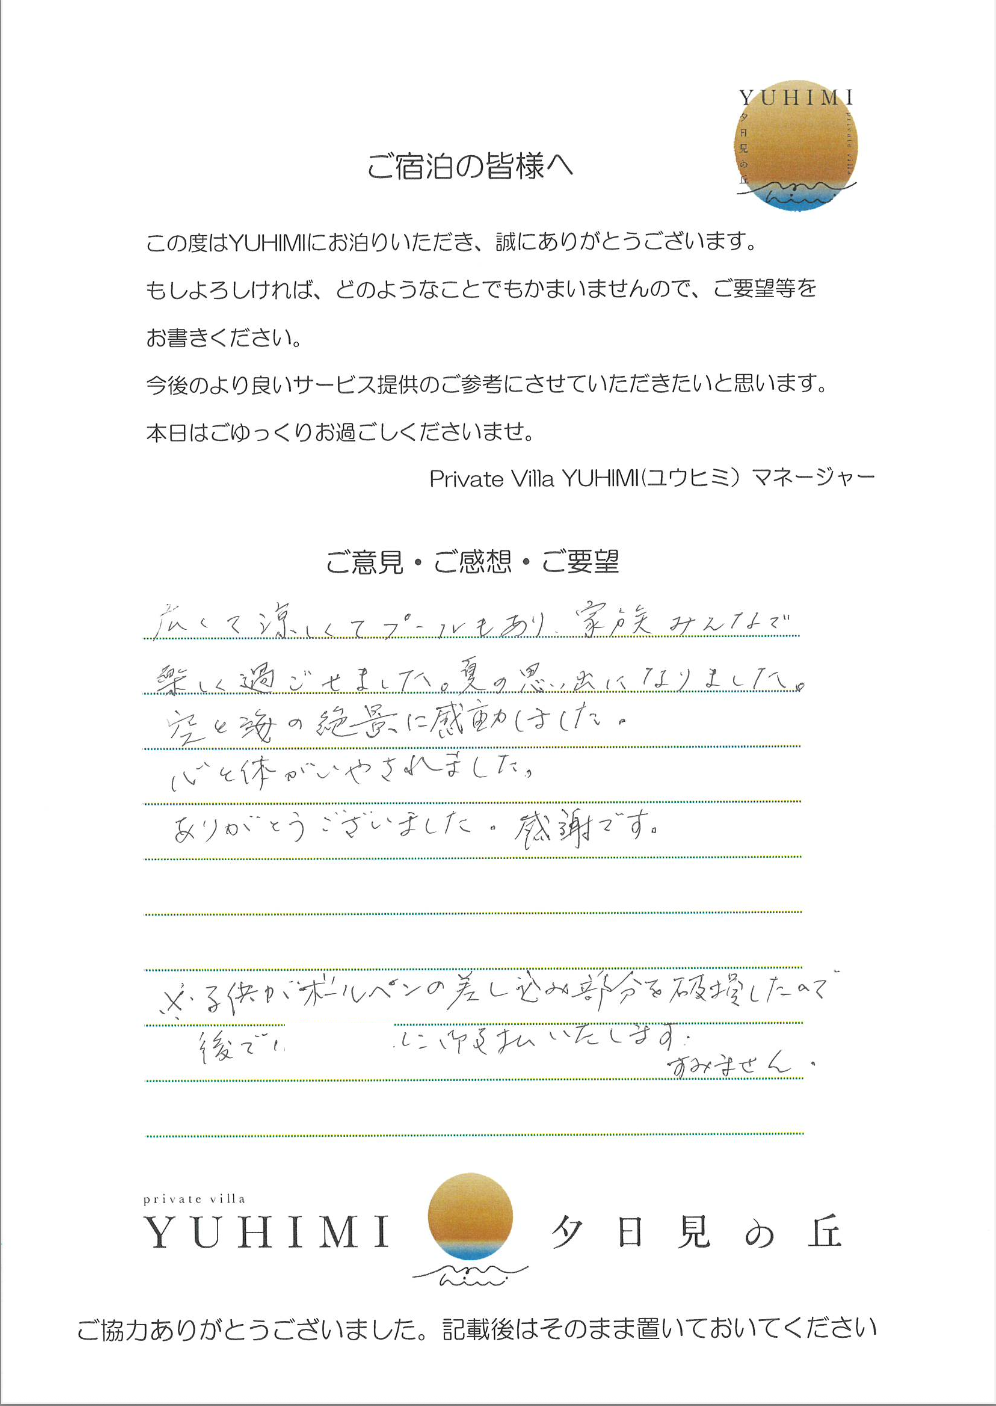 YUHIMI
夕日見の丘
private villa
ご宿泊の皆様へ
この度はYUHIMIにお泊りいただき、誠にありがとうございます。
もしよろしければ、どのようなことでもかまいませんので、ご要望等を
お書きください。
今後のより良いサービス提供のご参考にさせていただきたいと思います。
本日はごゆっくりお過ごしくださいませ。
Private Villa YUHIMI(ユウヒミ）マネージャー
ご意見・ご感想・ご要望
広くて涼しくてプールもあり、家族みんなで
楽しく過ごせました。夏の思い出になりました。
空と海の絶景に感動しました。
心と体がいやされました。
ありがとうございました。感謝です。
※子供がボールペンの差し込み部分を破損したので
後で お支払いいたします。
すみません。
private villa
YUHIMI 夕日見の丘
ご協力ありがとうございました。記載後はそのまま置いておいてください